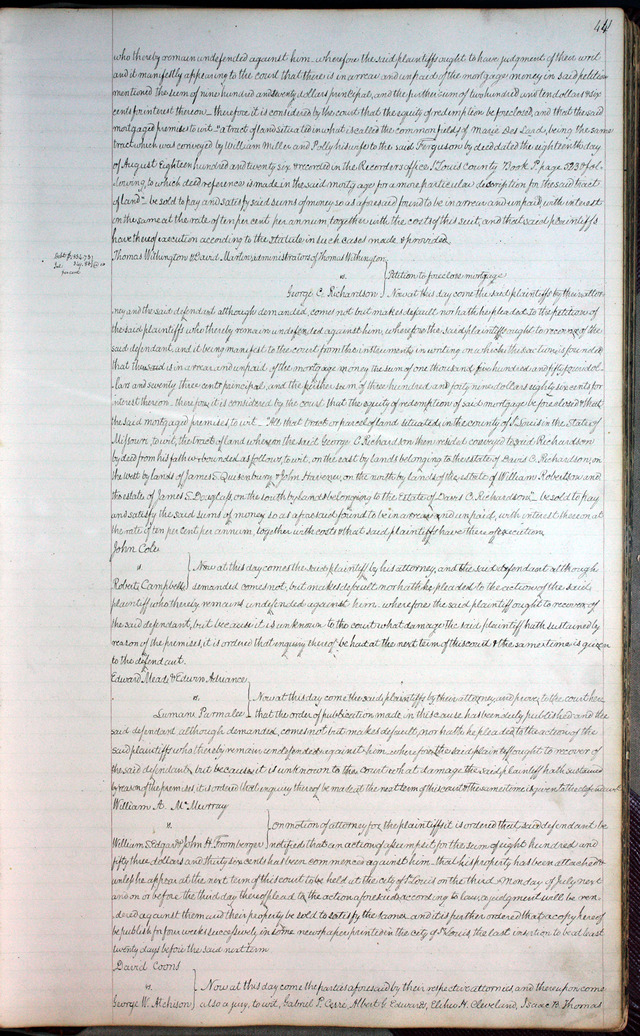 441
who thereby remain undefended against him wherefore the said plaintiffs ought to have judgment of their writ
and it manifestly appearing to the court that there is in arrear and unpaid of the mortgage money in said petition
mentioned the sum of nine hundred and seventy dollars principal, and the further sum of two hundred and ten dollars & six
cents for interest thereon therefore it is considered by the court that the equity of redemption be foreclosed, and that the said
mortgaged premises to wit "a tract of land situated in what is called the common fields of Marie Des Laard, being the same
tract which was conveyed by William Miller and Polly his wife to the said Ferguson by deed dated the eighteenth day
of August Eighteen hundred and twenty six & recorded in the Recorders office St Louis County Book P. page 323 & fol-
lowing, to which deed reference is made in the said mortgage for a more particular description for the said tract
of land" be sold to pay and satisfy said sums of money so as aforesaid found to be in arrear and unpaid, with interest
on the same at the rate of ten per cent per annum together with the costs of this suit, and that said plaintiffs
have thereof execution according to the statute in such cases made & provided.
Thomas Withington & Laird Martin, administrators of Thomas Withington
vs. Petition to foreclose mortgage
George C. Richardson Now at this day come the said plaintiffs by their attor-
ney and the said defendant although demanded, comes not but makes default nor hath he pleaded to the petition of
the said plaintiffs who thereby remain undefended against him, wherefore the said plaintiffs ought to recover of the
said defendant, and it being manifest to the court from the instruments in writing on which the suit is founded
that there is in arrear and unpaid of the mortgage money the sum of one thousand five hundred and fifty four dol-
lars and seventy three cents principal, and the further sum of three hundred and forty nine dollars eighty six cents for
interest thereon, therefore it is considered by the court that the equity of redemption of said mortgage be foreclosed & that
the said mortgaged premises to wit "All that tract or parcel of land situated in the county of St Louis in the State of
Missouri, to wit, the tract of land whereon the said George C. Richardson then resided conveyed to said Richardson
by deed from his father & bounded as follows, to wit, on the east by lands belonging to the estate of Davis C. Richardson, on
the west by lands of James S. Quisenbury & John Haveney, on the north by lands of the estate of William Robertson and
the estate of James S. Douglass, on the south by lands belonging to the Estate of Davis C. Richardson" be sold to pay
and satisfy the said sums of money so as aforesaid found to be in arrear and unpaid, with interest thereon at
the rate of ten per cent per annum, together with costs & that said plaintiffs have thereof execution.
John Cole
vs. Now at this day comes the said plaintiff by his attorney, and the said defendant although
Robert Campbell demanded comes not, but makes default nor hath he pleaded to the action of the said
plaintiff who thereby remains undefended against him, wherefore the said plaintiff ought to recover of
the said defendant, but because it is unknown to the court what damage the said plaintiff hath sustained by
reason of the premises, it is ordered that enquiry thereof be had at the next term of this court & the same time is given
to the defendant.
Edward Mead & Edwin Adriance
vs. Now at this day come the said plaintiffs by their attorney and prove to the court here
Lumane Parmalee that the order of publication made in this cause has been duly published and the
said defendant although demanded, comes not but makes default, nor hath he pleaded to the action of the
said plaintiffs who thereby remain undefended against him wherefore the said plaintiffs ought to recover of
the said defendant, but because it is unknown to the court what damage the said plaintiff hath sustained
by reason of the premises it is ordered that enquiry thereof be made at the next term of this court & the same time is given to the defendant
William A. McMurray
vs. on motion of attorney for the plaintiff it is ordered that said defendants be
William S. Edgar & John H. Fromberger notified that an action of assumpsit for the sum of eight hundred and
fifty three dollars and thirty six cents has been commenced against him that his property has been attached &
unless he appear at the next term of this court to be held at the city of St Louis on the third Monday of July next
and on or before the third day thereof plead to the action aforesaid according to law, a judgment will be ren-
dered against them and their property be sold to satisfy the same and it is further ordered that a copy hereof
be published for four weeks successively in some newspaper printed in the city of St Louis the last insertion to be at least
twenty days before the said next term
David Coons
vs. Now at this day come the parties aforesaid by their respective attornies, and thereupon come
George W. Atchison also a jury, to wit, Gabriel P. Cerre, Albert G. Edwards, Elihu H. Cleveland, Isaac B. Thomas